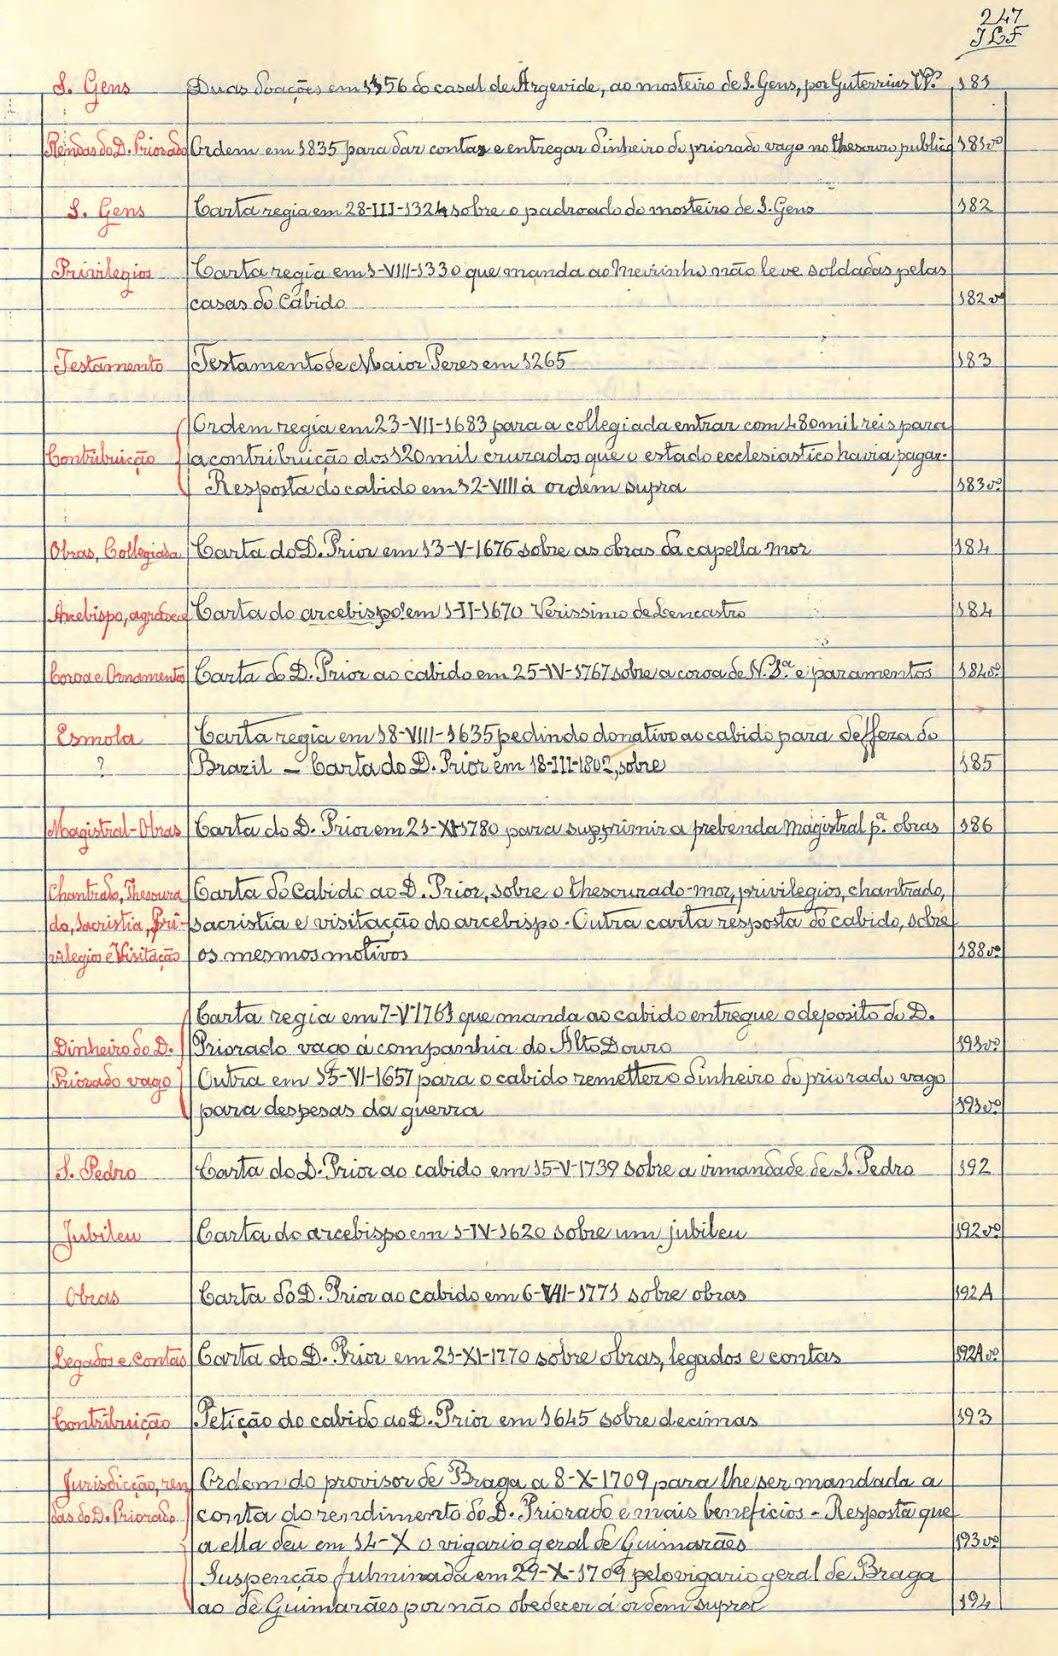 247
JLF
S. Gens Duas doações em 1156 do casal de Argevide, ao mosteiro de S. Gens, por Guterrius 181
Rendas do D. Priorado Ordem em 1835 para dar contas e entregar dinheiro do priorado vago no thesouro publico 181vº
S. Gens Carta regia em 28-III-1324 sobre o padroado do mosteiro de S. Gens 182
Privilegios Carta regia em 1-VIII-1330 que manda ao Meirinho não leve soldadas pelas
casas do Cabido 182vº
Testamento Testamento de Maior Peres em 1265 183
Ordem regia em 23-VII-1683 para a collegiada entrar com 480 mil reis para
Contribuição a contribuição dos 120 mil cruzados que o estado ecclesiastico havia pagar.
Resposta do cabido em 12-VIII á ordem supra 183vº
Obras, Collegiada Carta do D. Prior em 13-V-1676 sobre as obras da capella mor 184
Arcebispo, agradece Carta do arcebispo em 1-II-1670 Verissimo de Lencastro 184
Coroa e Ornamentos Carta do D. Prior ao cabido em 25-IV-1767 sobre a coroa de N. Sª e paramentos 184vº
Esmola Carta regia em 18-VIII-1635 pedindo donativo ao cabido para deffeza do
? Brazil - Carta do D. Prior em 18-III-1802, sobre 185
Magistral-Obras Carta do D. Prior em 21-XI-1780 para supprimir a prebenda Magistral pª obras 186
Chantrado, Thesoura Carta do Cabido ao D. Prior, sobre o thesourado-mor, privilegios, chantrado,
do, Sacristia, Pri- sacristia e visitação do arcebispo. Outra carta resposta do cabido, sobre
vilegios e Visitação os mesmos motivos 188vº
Carta regia em 7-V-1761 que manda ao cabido entregue o deposito do D.
Dinheiro do D. Priorado vago á companhia do Alto Douro 191vº
Priorado vago Outra em 15-VI-1657 para o cabido remetter o dinheiro do priorado vago
para despesas da guerra 191vº
S. Pedro Carta do D. Prior ao cabido em 15-V-1739 sobre a irmandade de S. Pedro 192
Jubileu Carta do arcebispo em 1-IV-1620 sobre um jubileu 192vº
Obras Carta do D. Prior ao cabido em 6-VII-1771 sobre obras 192A
Legados e contas Carta do D. Prior em 21-XI-1770 sobre obras, legados e contas 192A vº
Contribuição Petição do cabido ao D. Prior em 1645 sobre decimas 193
Jurisdicção, ren Ordem do provisor de Braga a 8-X-1709 para lhe ser mandada a
das do D. Priorado conta do rendimento do D. Priorado e mais beneficios - Resposta que
a ella deu em 14-X o vigario geral de Guimarães 193vº
Suspenção fulminada em 29-X-1709 pelo vigario geral de Braga
ao de Guimarães por não obedecer á ordem supra 194